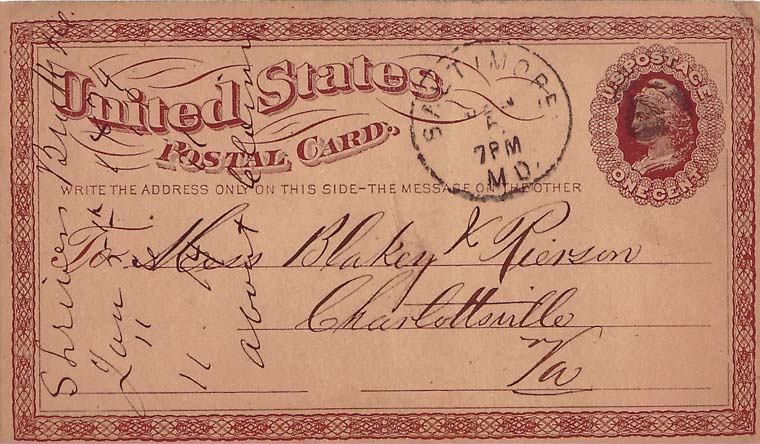 United States
POSTAL CARD.
WRITE THE ADDRESS ONLY ON THIS SIDE-THE MESSAGE ON THE OTHER
U.S. POSTAGE
ONE CENT
BALTIMORE
7 PM
MD.
To Mess Blakey & Pierson
Charlottsville
Va
Shriver
Jan
11
11
about claim